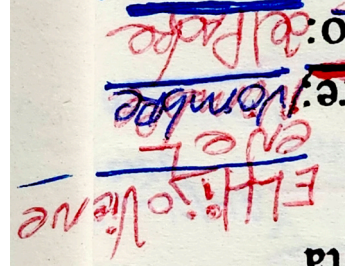 El Hijo Viene
en el
Nombre
del Padre